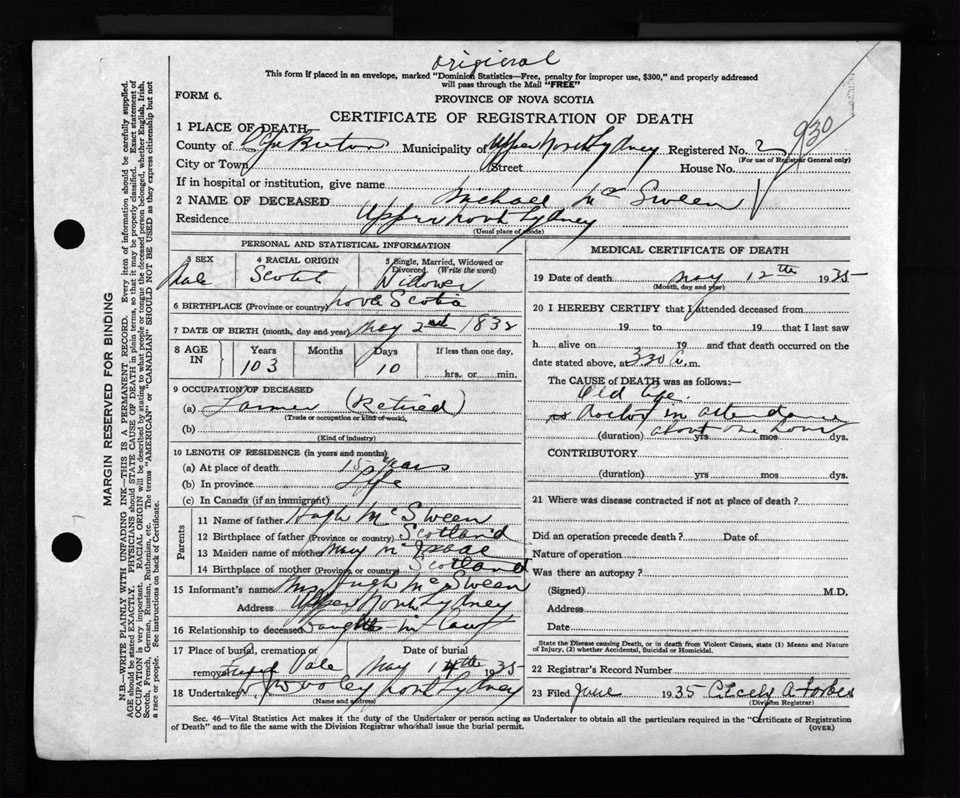 original
This form if placed in an envelope, marked "Dominion Statistics—Free, penalty for improper use, $300," and properly addressed
will pass through the Mail "FREE"
FORM 6.
PROVINCE OF NOVA SCOTIA
CERTIFICATE OF REGISTRATION OF DEATH
930
1 PLACE OF DEATH
County of Cape Breton Municipality of Upper North Sydney Registered No. 2
(For use of Registrar General only)
City or Town Street House No.
If in hospital or institution, give name
2 NAME OF DECEASED Michael Mc Sween
Residence Upper North Sydney
(Usual place of abode)
PERSONAL AND STATISTICAL INFORMATION
3 SEX 4 RACIAL ORIGIN 5 Single, Married, Widowed or
Divorced. (Write the word)
Male Scotch Widower
6 BIRTHPLACE (Province or country) Nova Scotia
7 DATE OF BIRTH (month, day and year) May 2nd 1832
8 AGE IN Years Months Days If less than one day,
103 10 hrs. or min.
9 OCCUPATION OF DECEASED
(a) Farmer (Retired)
(Trade or occupation or kind of work)
(b)
(Kind of industry)
10 LENGTH OF RESIDENCE (in years and months)
(a) At place of death 15 years
(b) In province Life
(c) In Canada (if an immigrant)
Parents
11 Name of father Hugh Mc Sween
12 Birthplace of father (Province or country) Scotland
13 Maiden name of mother Mary
14 Birthplace of mother (Province or country) Scotland
15 Informant's name Mrs Hugh Mc Sween
Address Upper North Sydney
16 Relationship to deceased Daughter in Law
17 Place of burial, cremation or Date of burial
removal Vale May 14th 1935
18 Undertaker Wooley North Sydney
(Name and address)
MEDICAL CERTIFICATE OF DEATH
19 Date of death May 12th 1935
(Month, day and year)
20 I HEREBY CERTIFY that I attended deceased from
19 to 19 that I last saw
h alive on 19 and that death occurred on the
date stated above, at 330 A. m.
The CAUSE of DEATH was as follows:—
Old Age.
no doctor in attendance
about one hour
(duration) yrs mos dys.
CONTRIBUTORY
(duration) yrs mos dys.
21 Where was disease contracted if not at place of death ?
Did an operation precede death ? Date of
Nature of operation
Was there an autopsy ?
(Signed) M.D.
Address
Date
State the Disease causing Death, or in death from Violent Causes, state (1) Means and Nature
of Injury, (2) whether Accidental, Suicidal or Homicidal.
22 Registrar's Record Number
23 Filed June 1935 Cicely A. Forbes
(Division Registrar)
Sec. 46—Vital Statistics Act makes it the duty of the Undertaker or person acting as Undertaker to obtain all the particulars required in the "Certificate of Registration
of Death" and to file the same with the Division Registrar who shall issue the burial permit.
(OVER)
MARGIN RESERVED FOR BINDING
N.B.—WRITE PLAINLY WITH UNFADING INK—THIS IS A PERMANENT RECORD. Every item of information should be carefully supplied.
AGE should be stated EXACTLY. PHYSICIANS should STATE CAUSE OF DEATH in plain terms, so that it may be properly classified. Exact statement of
OCCUPATION is very important. RACIAL ORIGIN will be described by stating to what people or tongue the deceased person belonged, whether English, Irish,
Scotch, French, German, Russian, Ruthenian, etc. The terms "AMERICAN" or "CANADIAN" SHOULD NOT BE USED as they express citizenship but not
a race or people. See instructions on back of Certificate.